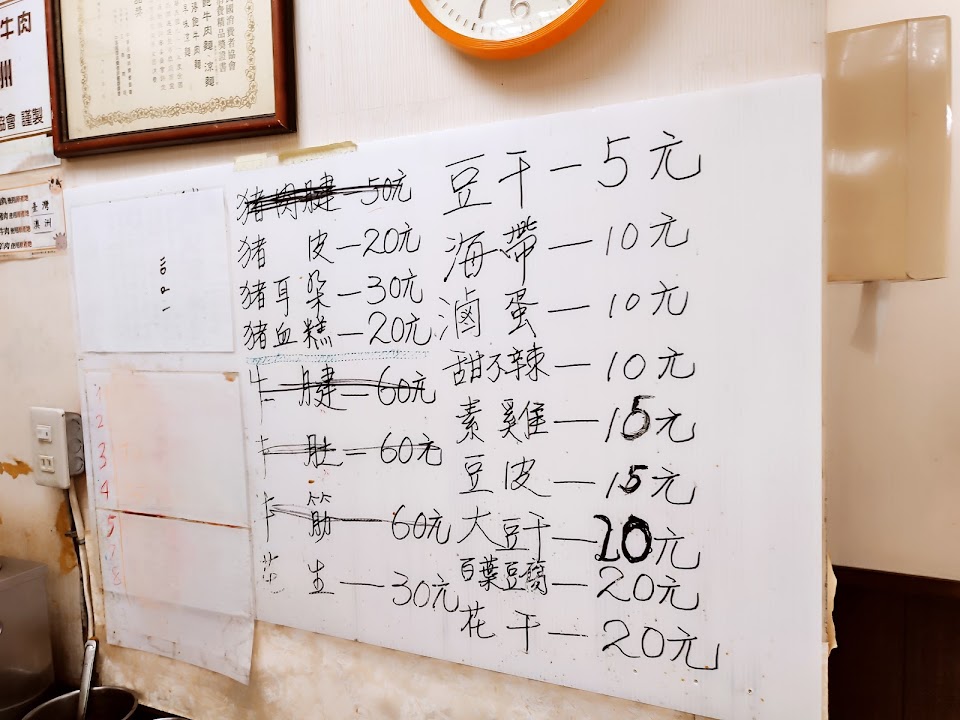 牛肉
州
協會 謹製
國消費者協會
費精品獎證書
牛肉麵 涼麵
臺灣
澳洲
猪肉腱—50元
猪 皮—20元
猪耳朶—30元
猪血糕—20元
腱—60元
肚—60元
筋—60元
生—30元
豆干—5元
海帶—10元
滷蛋—10元
甜不辣—10元
素雞—15元
豆皮—15元
大豆干—20元
百葉豆腐—20元
花干—20元
1
2
3
4
5
7
8